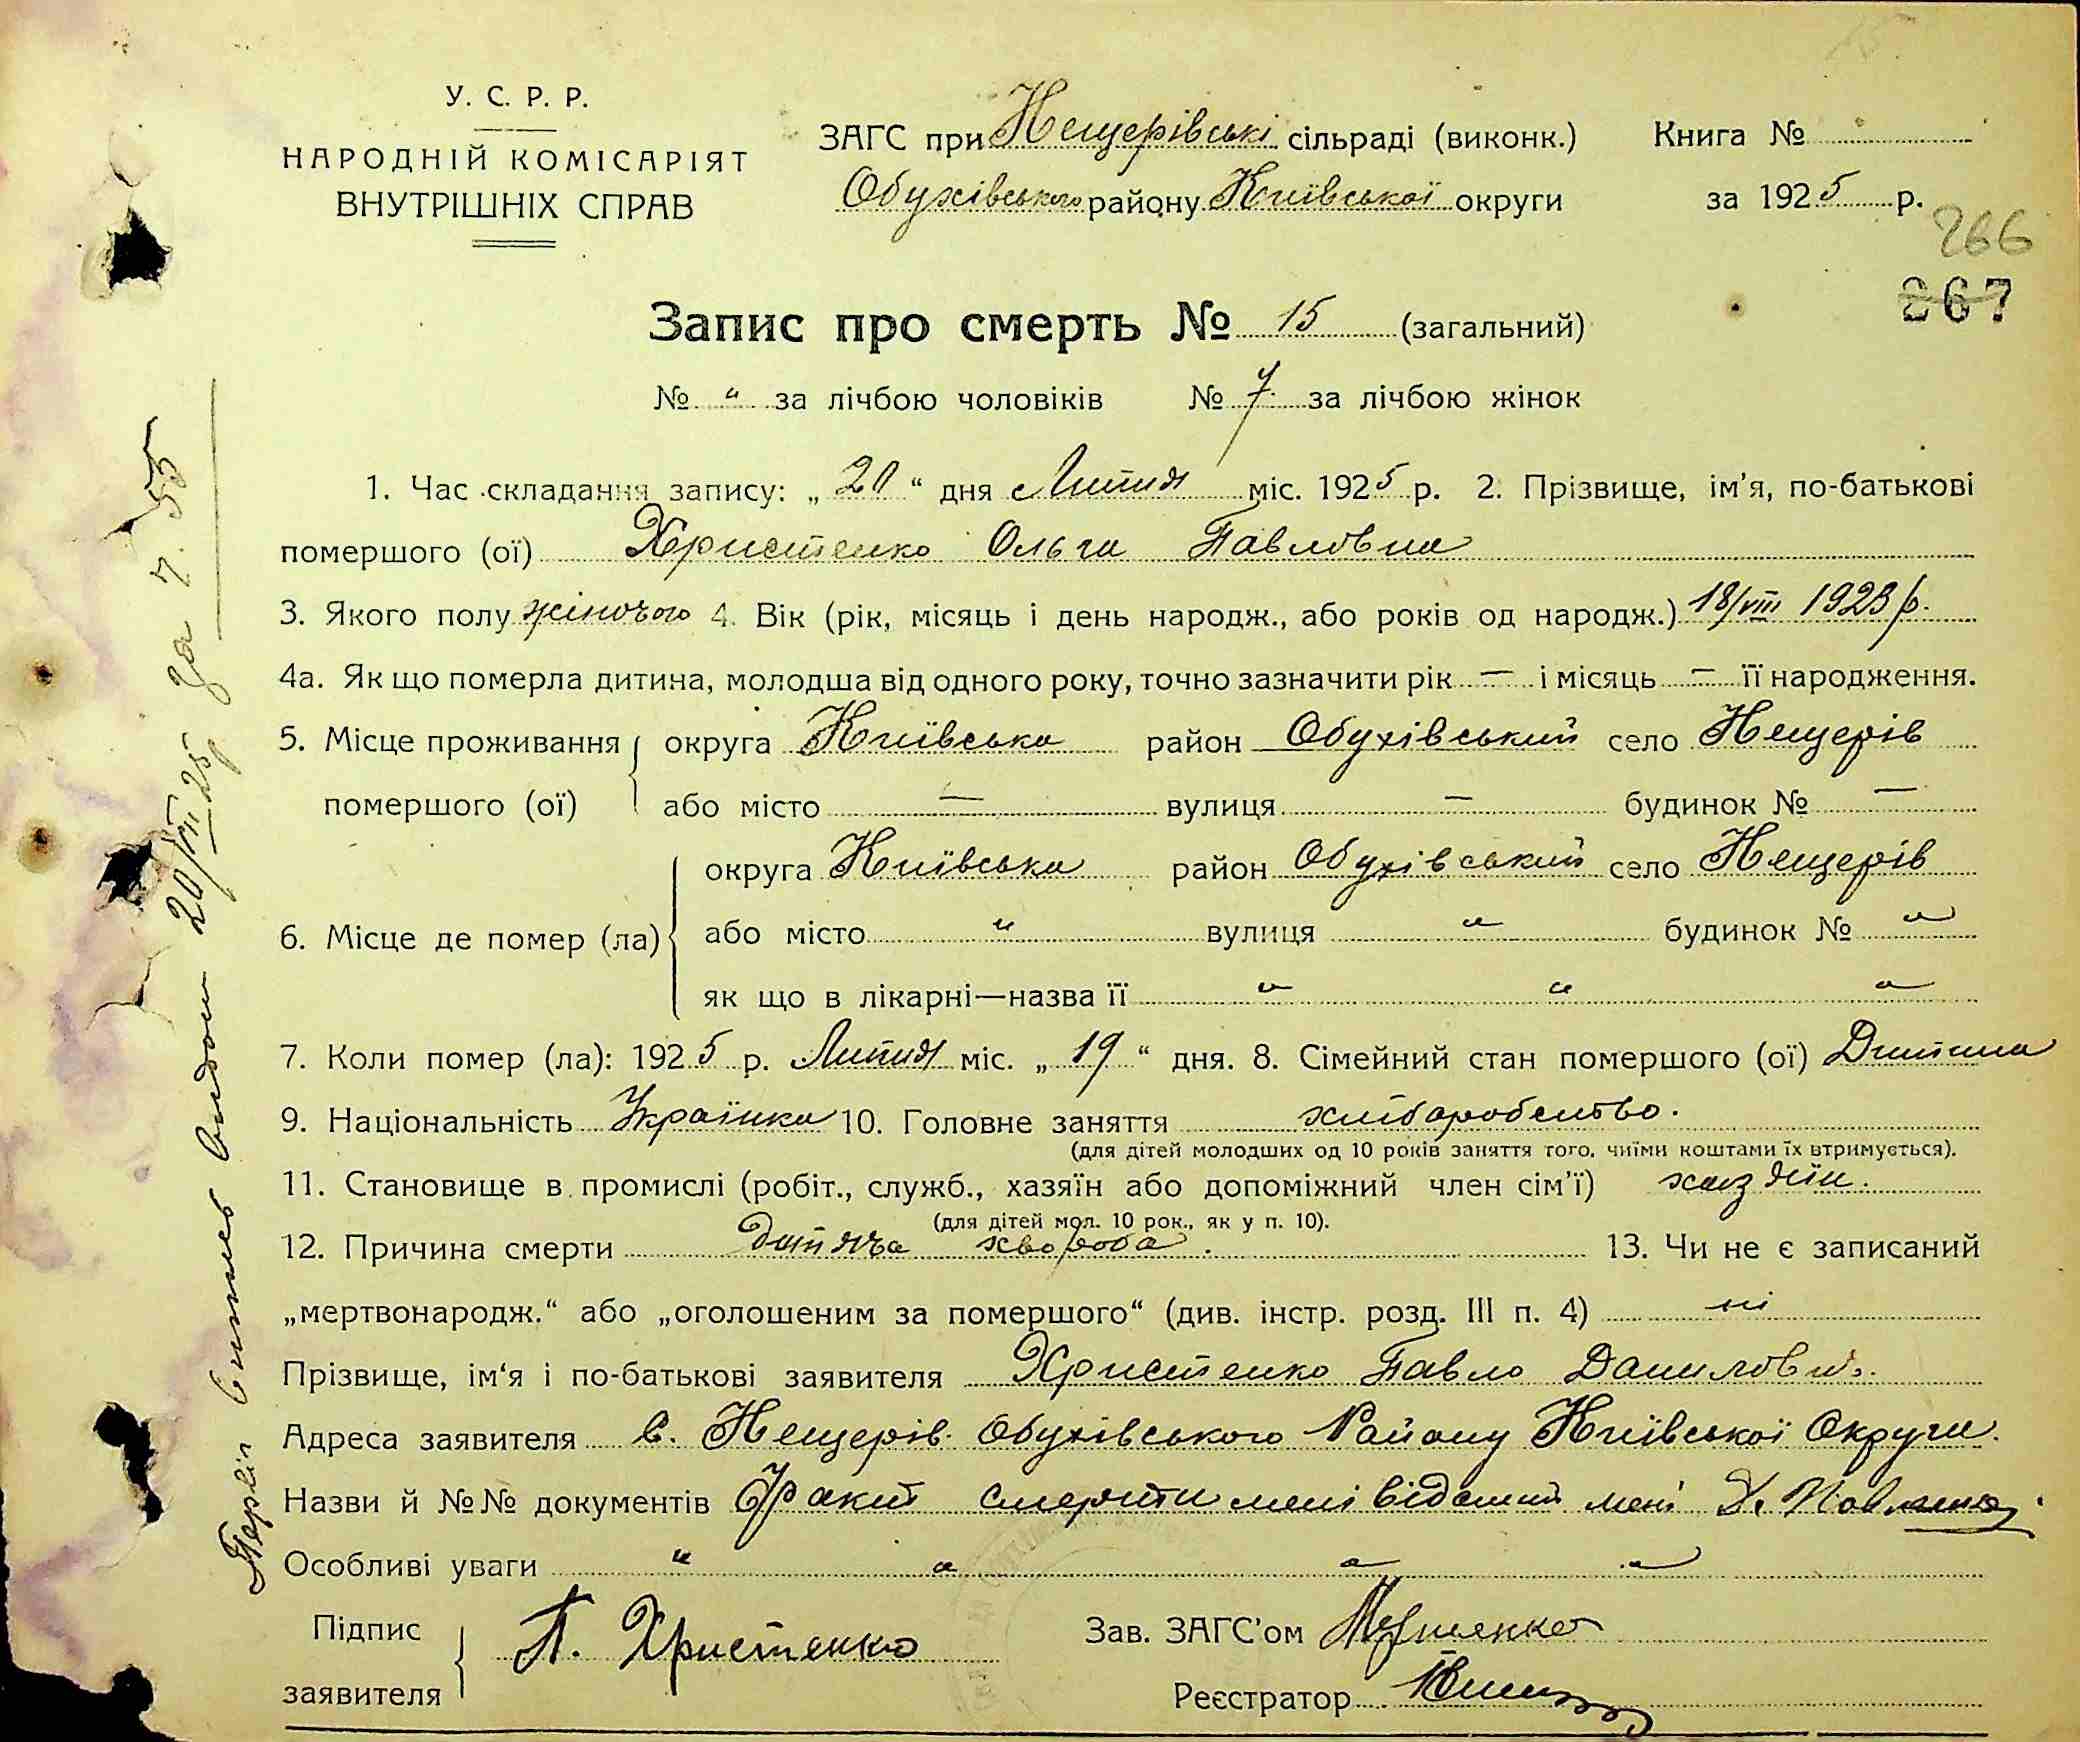 У. С. Р. Р.
НАРОДНІЙ КОМІСАРІЯТ
ВНУТРІШНІХ СПРАВ
ЗАГС при Нещерівські сільраді (виконк.) Книга №
Обухівського району Київської округи за 1925 р.
266
267
Запис про смерть № 15 (загальний)
№ " за лічбою чоловіків № 7 за лічбою жінок
1. Час складання запису: „20“ дня Липня міс. 1925 р. 2. Прізвище, ім'я, по-батькові
помершого (ої) Христенко Ольга Павловна
3. Якого полу жіночого 4. Вік (рік, місяць і день народж., або років од народж.) 18/VIII 1923 р.
4а. Як що померла дитина, молодша від одного року, точно зазначити рік — і місяць — її народження.
5. Місце проживання округа Київська район Обухівський село Нещерів
помершого (ої) або місто — вулиця — будинок № —
округа Київська район Обухівський село Нещерів
6. Місце де помер (ла) або місто " вулиця " будинок № "
як що в лікарні—назва її " " "
7. Коли помер (ла): 1925 р. Липня міс. „19“ дня. 8. Сімейний стан помершого (ої) Дитина
9. Національність Українка 10. Головне заняття хлібаробство.
(для дітей молодших од 10 років заняття того, чиїми коштами їх втримується).
11. Становище в промислі (робіт., служб., хазяїн або допоміжний член сім'ї) хазяїн.
(для дітей мол. 10 рок., як у п. 10).
12. Причина смерти дитяча хвороба. 13. Чи не є записаний
„мертвонародж.“ або „оголошеним за помершого“ (див. інстр. розд. III п. 4) ні
Прізвище, ім'я і по-батькові заявителя Христенко Павло Данилович.
Адреса заявителя с. Нещерів Обухівського Району Київської Округи.
Назви й №№ документів Факт смерти мені відомий мені
Особливі уваги " " " "
Підпис П. Христенко Зав. ЗАГС'ом
заявителя Реєстратор
Первіп витпсь видом 20/VII 25 р за ч. 55